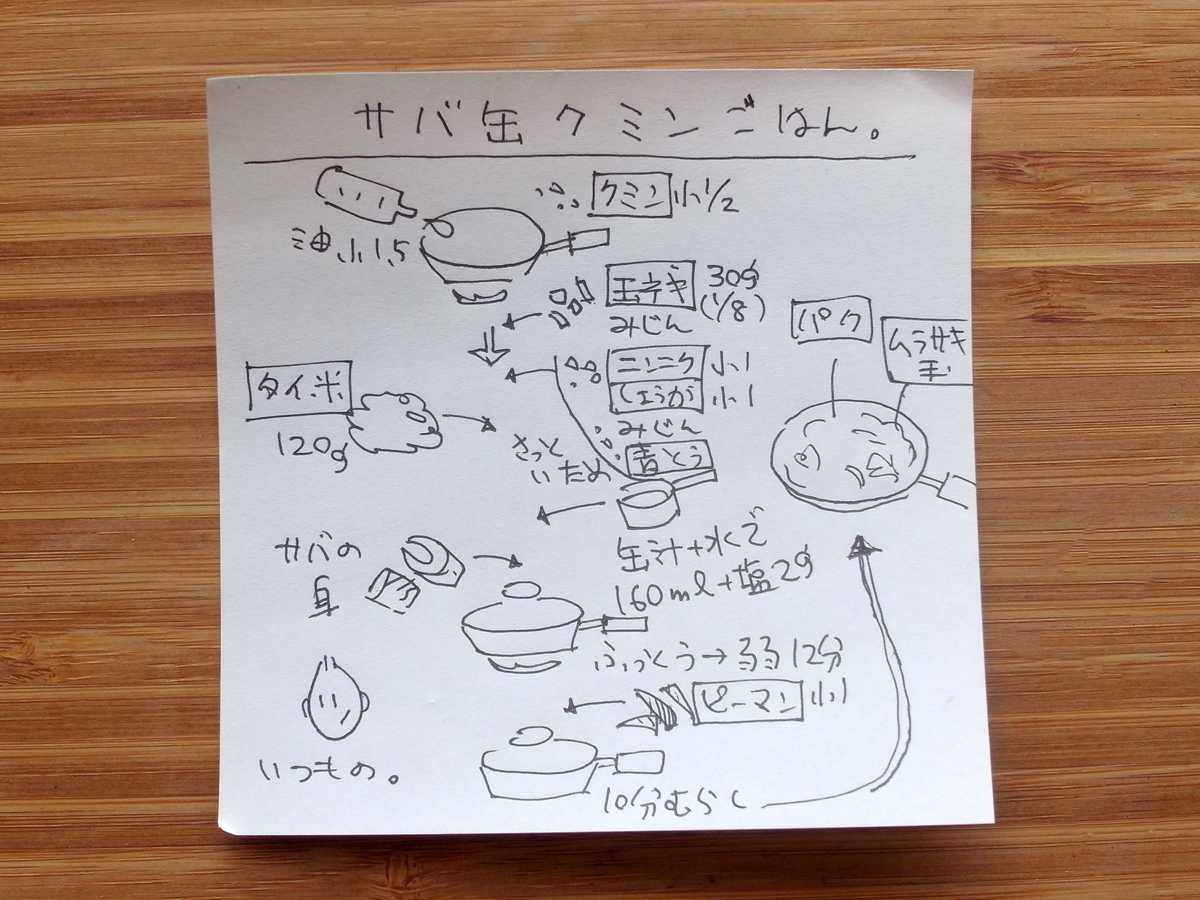 サバ缶クミンごはん。
クミン 小1/2
油小1.5
玉ネギ 30g
(1/8)
みじん
ニンニク 小1
しょうが 小1
みじん
青とう
タイ米
120g
さっと
いため
缶汁+水で
160ml+塩2g
サバの
身
ふっとう→弱弱12分
ピーマン 小1
10分むらし
パク
ムラサキ
玉
いつもの。